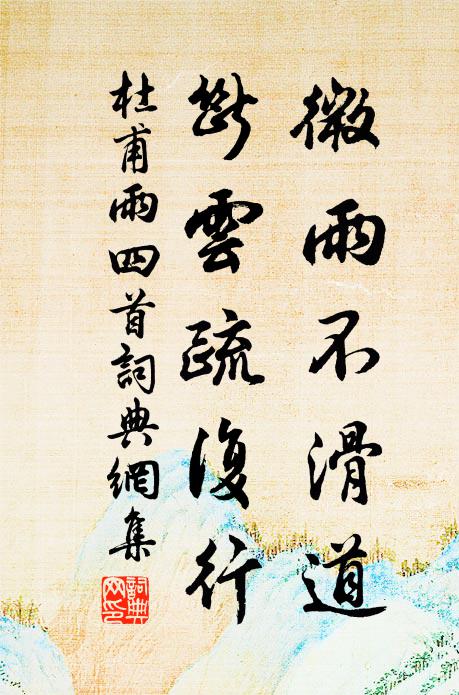 微雨不滑道
斷雲疏復行
杜甫雨四首詞典網集
詞典